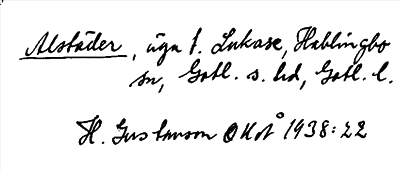 Alstäder, äga t. Lukase, Hablingbo
sn, Gotl. s. hd, Gotl. l.
H. Gustavson OKot° 1938:22